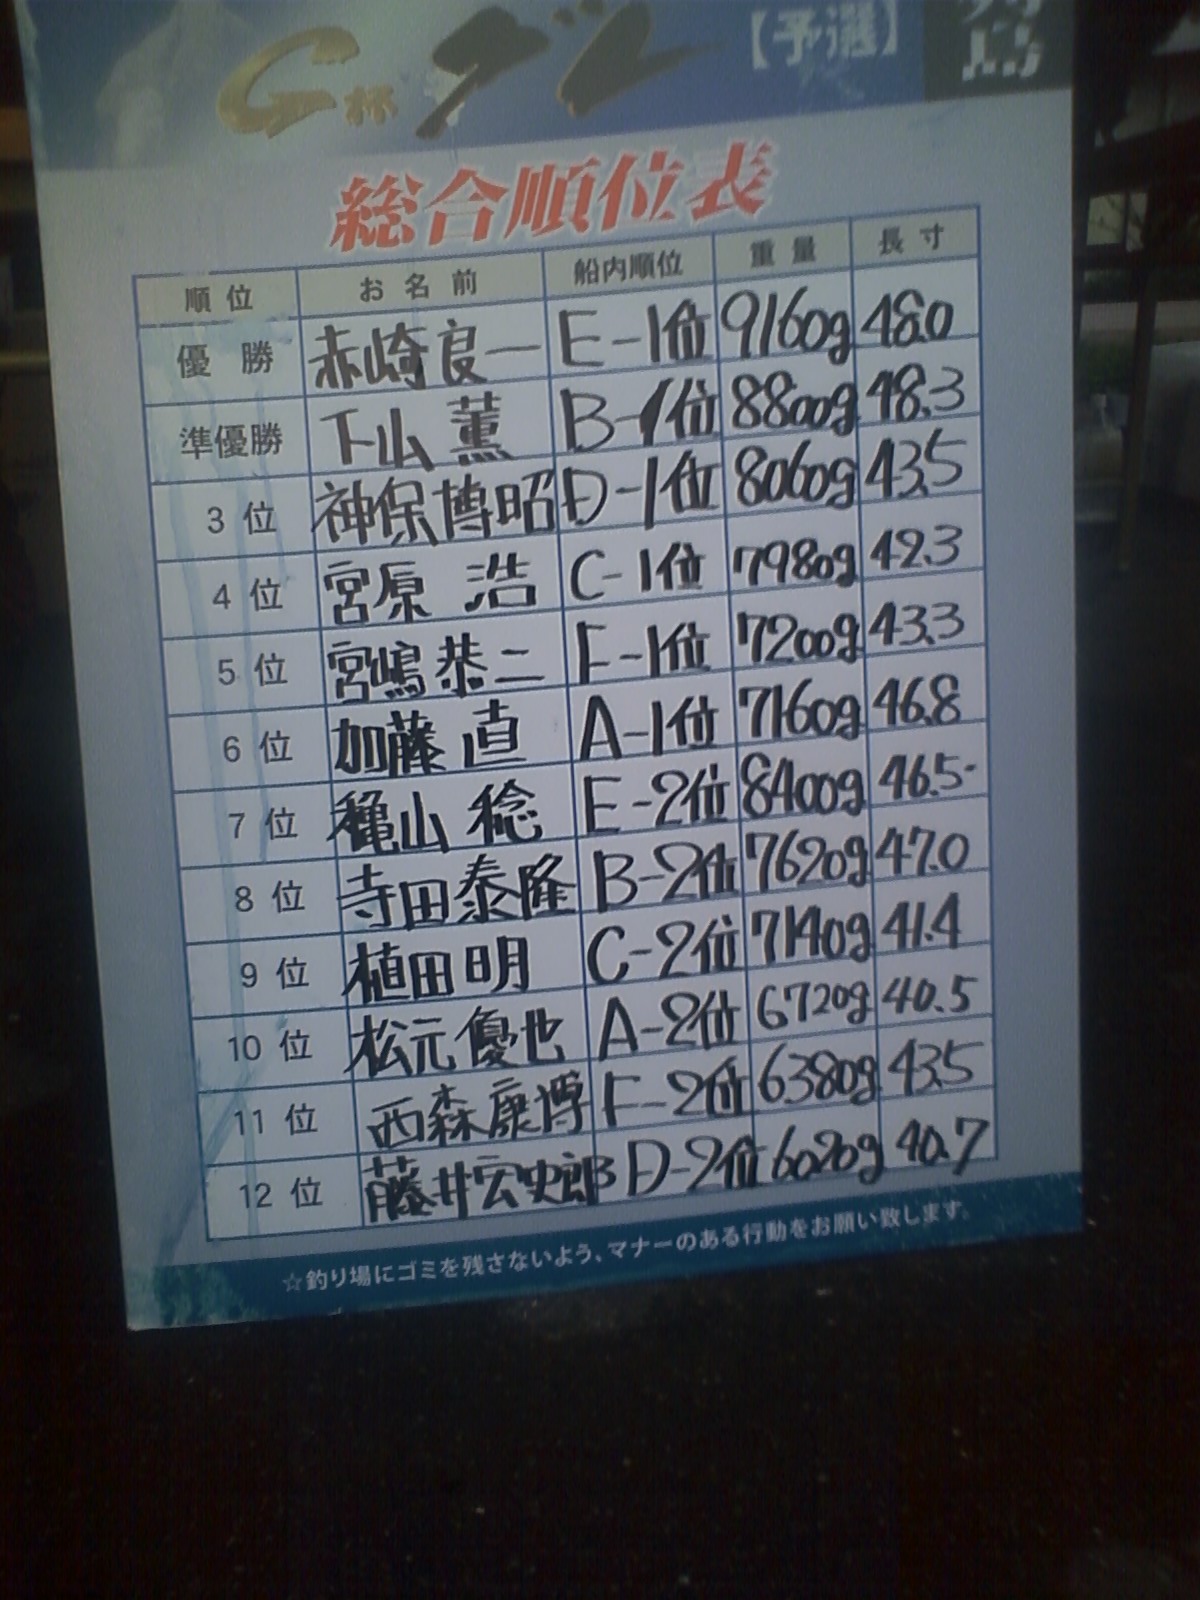 G杯グレ 【予選】
総合順位表
順位 お名前 船内順位 重量 長寸
優勝 赤崎良一 E-1位 9160g 48.0
準優勝 下山薫 B-1位 8800g 48.3
3位 神保博昭 D-1位 8060g 43.5
4位 宮原 浩 C-1位 7980g 42.3
5位 宮嶋恭二 F-1位 7200g 43.3
6位 加藤 直 A-1位 7160g 46.8
7位 穐山 稔 E-2位 8400g 46.5
8位 寺田泰隆 B-2位 7620g 47.0
9位 植田明 C-2位 7140g 41.4
10位 松元優也 A-2位 6720g 40.5
11位 西森康博 F-2位 6380g 43.5
12位 藤井宏史郎 D-2位 6020g 40.7
☆釣り場にゴミを残さないよう、マナーのある行動をお願い致します。